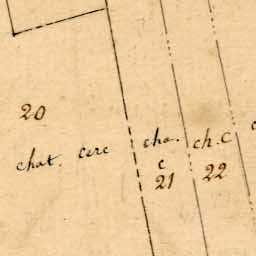 20
chat. cere
cha.
c
21
ch. C
22